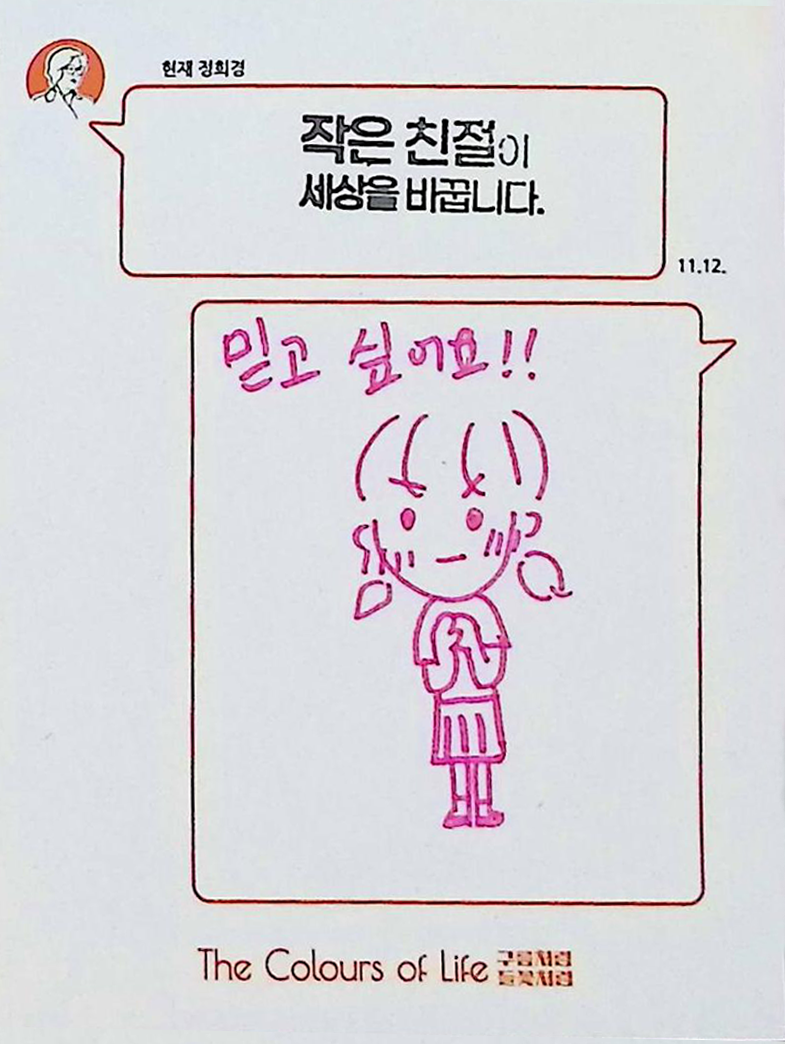 현재 정희경
작은 친절이
세상을 바꿉니다.
11.12.
믿고 싶어요!!
The Colours of Life 구름처럼
들꽃처럼